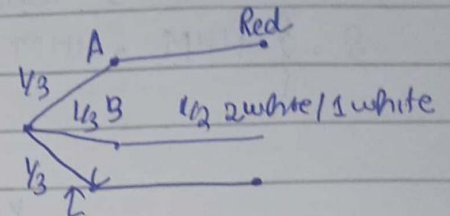 Red
A
1/3
1/3 B 1/2 2 white / 1 white
1/3